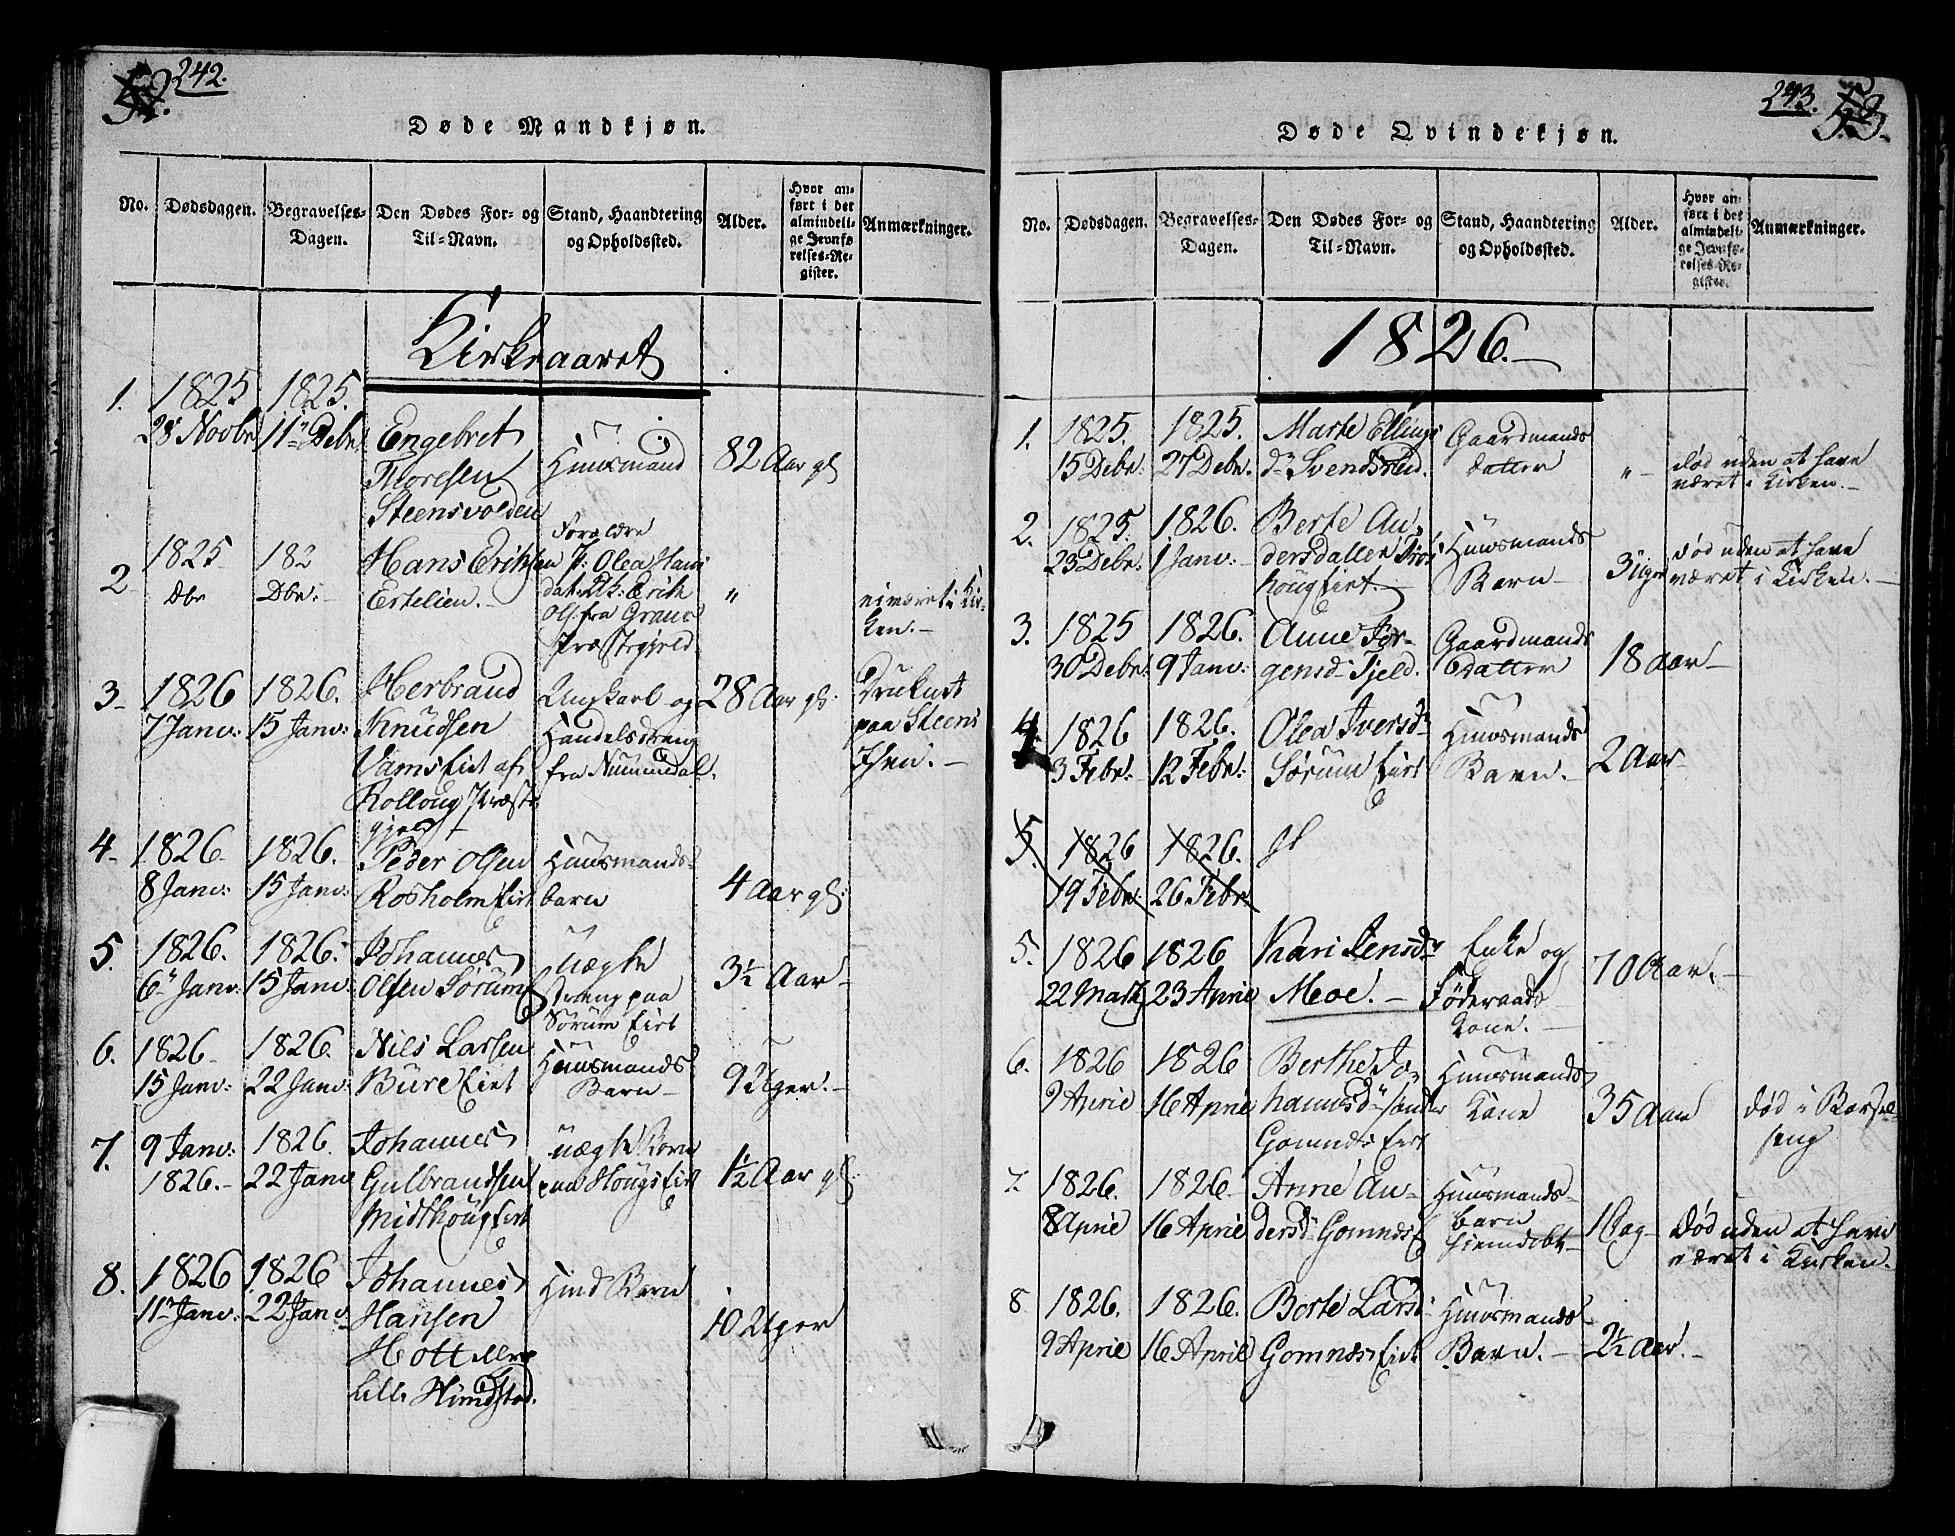 52. 242.
Døde Mandkjøn.
No. Dødsdagen. Begravelses-Dagen. Den Dødes For- og Til-Navn. Stand, Haandtering og Opholdssted. Alder. Hvor anført i det almindelige Jevnførelses-Register. Anmærkninger.
Kirkeaaret
1. 1825 1825.
28 Novbr 11 Debr. Engebret
Thoresen Huusmand 82 Aar gl
Steensvolden
Forældre
2 1825 182 Hans Eriksen P: Olea Hans
Dbr Dbr. Estelien. dat. Uk: Erik " ei været i Kir-
Ols. fra Grans ken.
Præstegjeld
3 1826 1826. Herbrand Ungkarl og 28 Aar gl: Druknet
7 Janv: 15 Janv: Knudsen Handelsdreng paa Steens
Vams Eiet af fra Nummedal. fSen.
Rolloug Præste
gjeld
4 1826 1826. Peder Olsen Huusmands-
8 Janv: 15 Janv: Rosholm Eiet barn 4 Aar gl:
5. 1826. 1826. Johannes Uægte
6 Janv. 15 Janv: Olsen Sørum dreng paa 3½ Aar
Sørum Eiet
6. 1826 1826. Nils Larsen Huusmands
15 Janv: 22 Janv: Bure Eiet Barn 9 Uger.
7. 9 Janv: 1826. Johannes uægte Barn
1826. 22 Janv Gulbrandsen paa Hougs Eiet 1½ Aar gl:
Midthoug Eiet
8. 1826 1826 Johannes Hind Barn
11 Janv: 22 Janv Hansen 10 Uger
Hott
Lille Himdstad.
243. 53.
Døde Qvindekjøn.
No. Dødsdagen. Begravelses-Dagen. Den Dødes For- og Til-Navn. Stand, Haandtering og Opholdssted. Alder. Hvor anført i det almindelige Jevnførelses-Register. Anmærkninger.
1826.
1. 1825. 1825. Marte Ellings Gaardmands
15 Debr: 27 Debr. dr Svendsrud. datter " død uden at have
været i Kirken.
2. 1825. 1826. Berte An-
23 Debr: 1 Janv: dersdatter Huusmands 3 Uger død uden at have
houg Eiet. Barn været i Kirken.
3. 1825 1826. Anne Jør- Gaardmands
30 Debr: 9 Janv: gensd. Fjeld. datter 18 Aar
4 1826 1826. Olea Iversdr Huusmands
3 Febr. 12 Febr: Sørum Eiet Barn. 2 Aar
5. 1826 1826.
19 Febr: 26 Febr:
5. 1826 1826 Kari Jensdr Enke og 70 Aar.
22 Marts 23 April Moe. Føderaads
Kone.
6. 1826 1826 Berthe Jo- Huusmands
9 April 16 April hannesdr Kone 35 Aar død i Barsel
Gomnæs Eiet seng
7. 1826. 1826 Anne An- Huusmands-
8 April 16 April dersd Gomnæs E barn 1 Dag død uden at have
hjemdøbt været i Kirken.
8 1826. 1826. Berte Larsd Huusmands
9 April 16 April Gomnæs Eiet Barn. 2½ Aar.